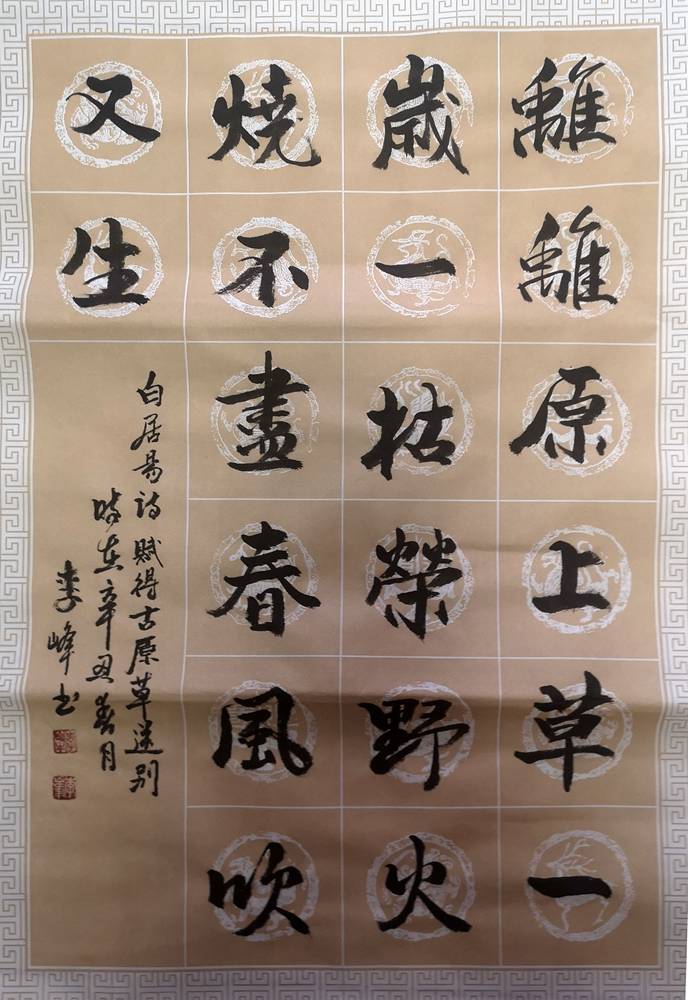 離離原上草一
歲一枯榮野火
燒不盡春風吹
又生
白居易詩賦得古原草送别
時在辛丑春月
李峰书